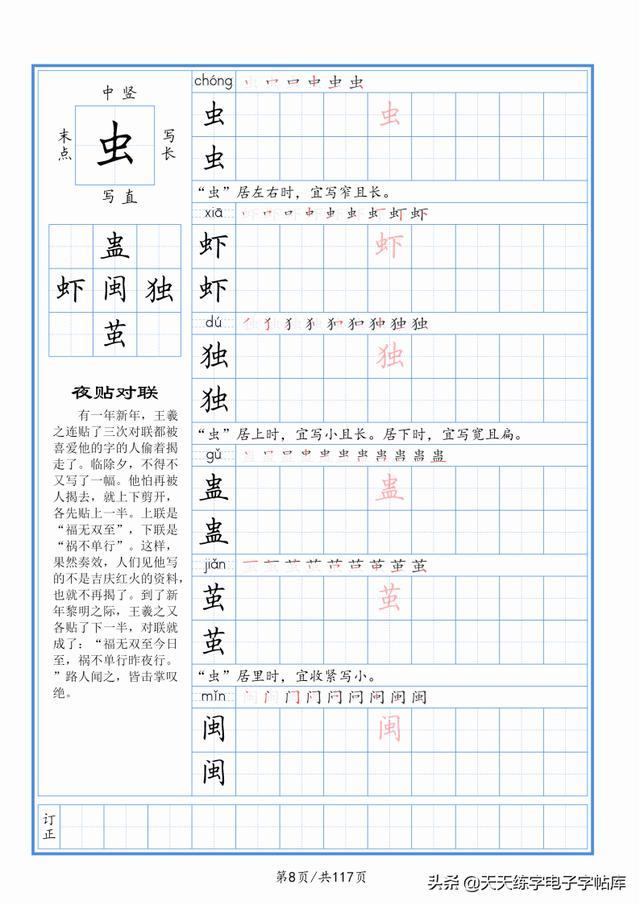 中竖
末点
虫
写长
写直
蛊
虾 闽 独
茧
夜贴对联
有一年新年，王羲
之连贴了三次对联都被
喜爱他的字的人偷着揭
走了。临除夕，不得不
又写了一幅。他怕再被
人揭去，就上下剪开，
各先贴上一半。上联是
“福无双至”，下联是
“祸不单行”。这样，
果然奏效，人们见他写
的不是吉庆红火的资料，
也就不再揭了。到了新
年黎明之际，王羲之又
各贴了下一半，对联就
成了：“福无双至今日
至，祸不单行昨夜行。
”路人闻之，皆击掌叹
绝。
chóng
虫 虫
虫
“虫”居左右时，宜写窄且长。
xiā
虾 虾
虾
dú
独 独
独
“虫”居上时，宜写小且长。居下时，宜写宽且扁。
gǔ
蛊 蛊
蛊
jiǎn
茧 茧
茧
“虫”居里时，宜收紧写小。
mǐn
闽 闽
闽
订正
第8页/共117页
头条@天天练字电子字帖库